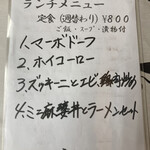 ランチメニュー
定食(週替わり)¥800
ご飯・スープ・漬物付
1.マーボドーフ
2.ホイコーロー
3.ズッキーニとエビ、鶏肉炒め
4.ミニ麻婆丼とラーメンセット